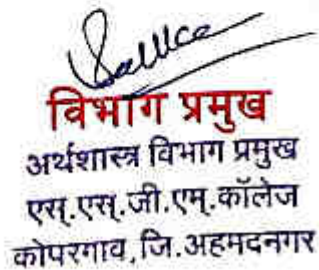 विभाग प्रमुख
अर्थशास्त्र विभाग प्रमुख
एस्.एस्.जी.एम्.कॉलेज
कोपरगाव,जि.अहमदनगर